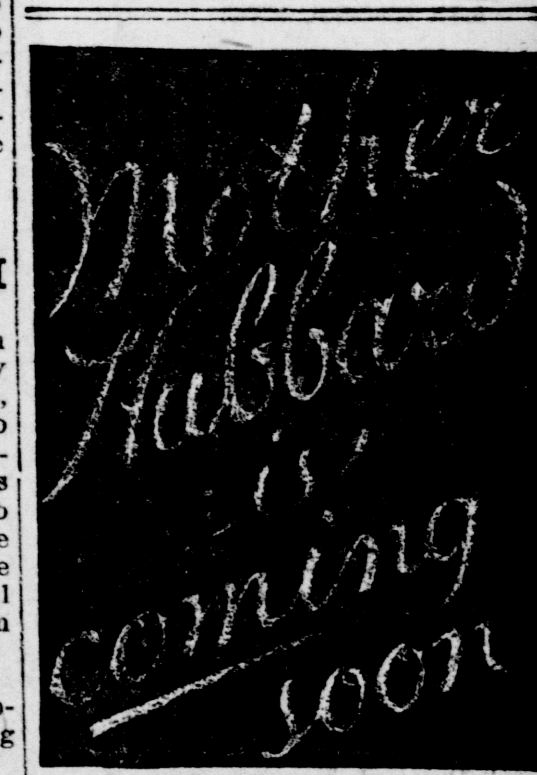 Mother
Hubbard
is
coming
soon